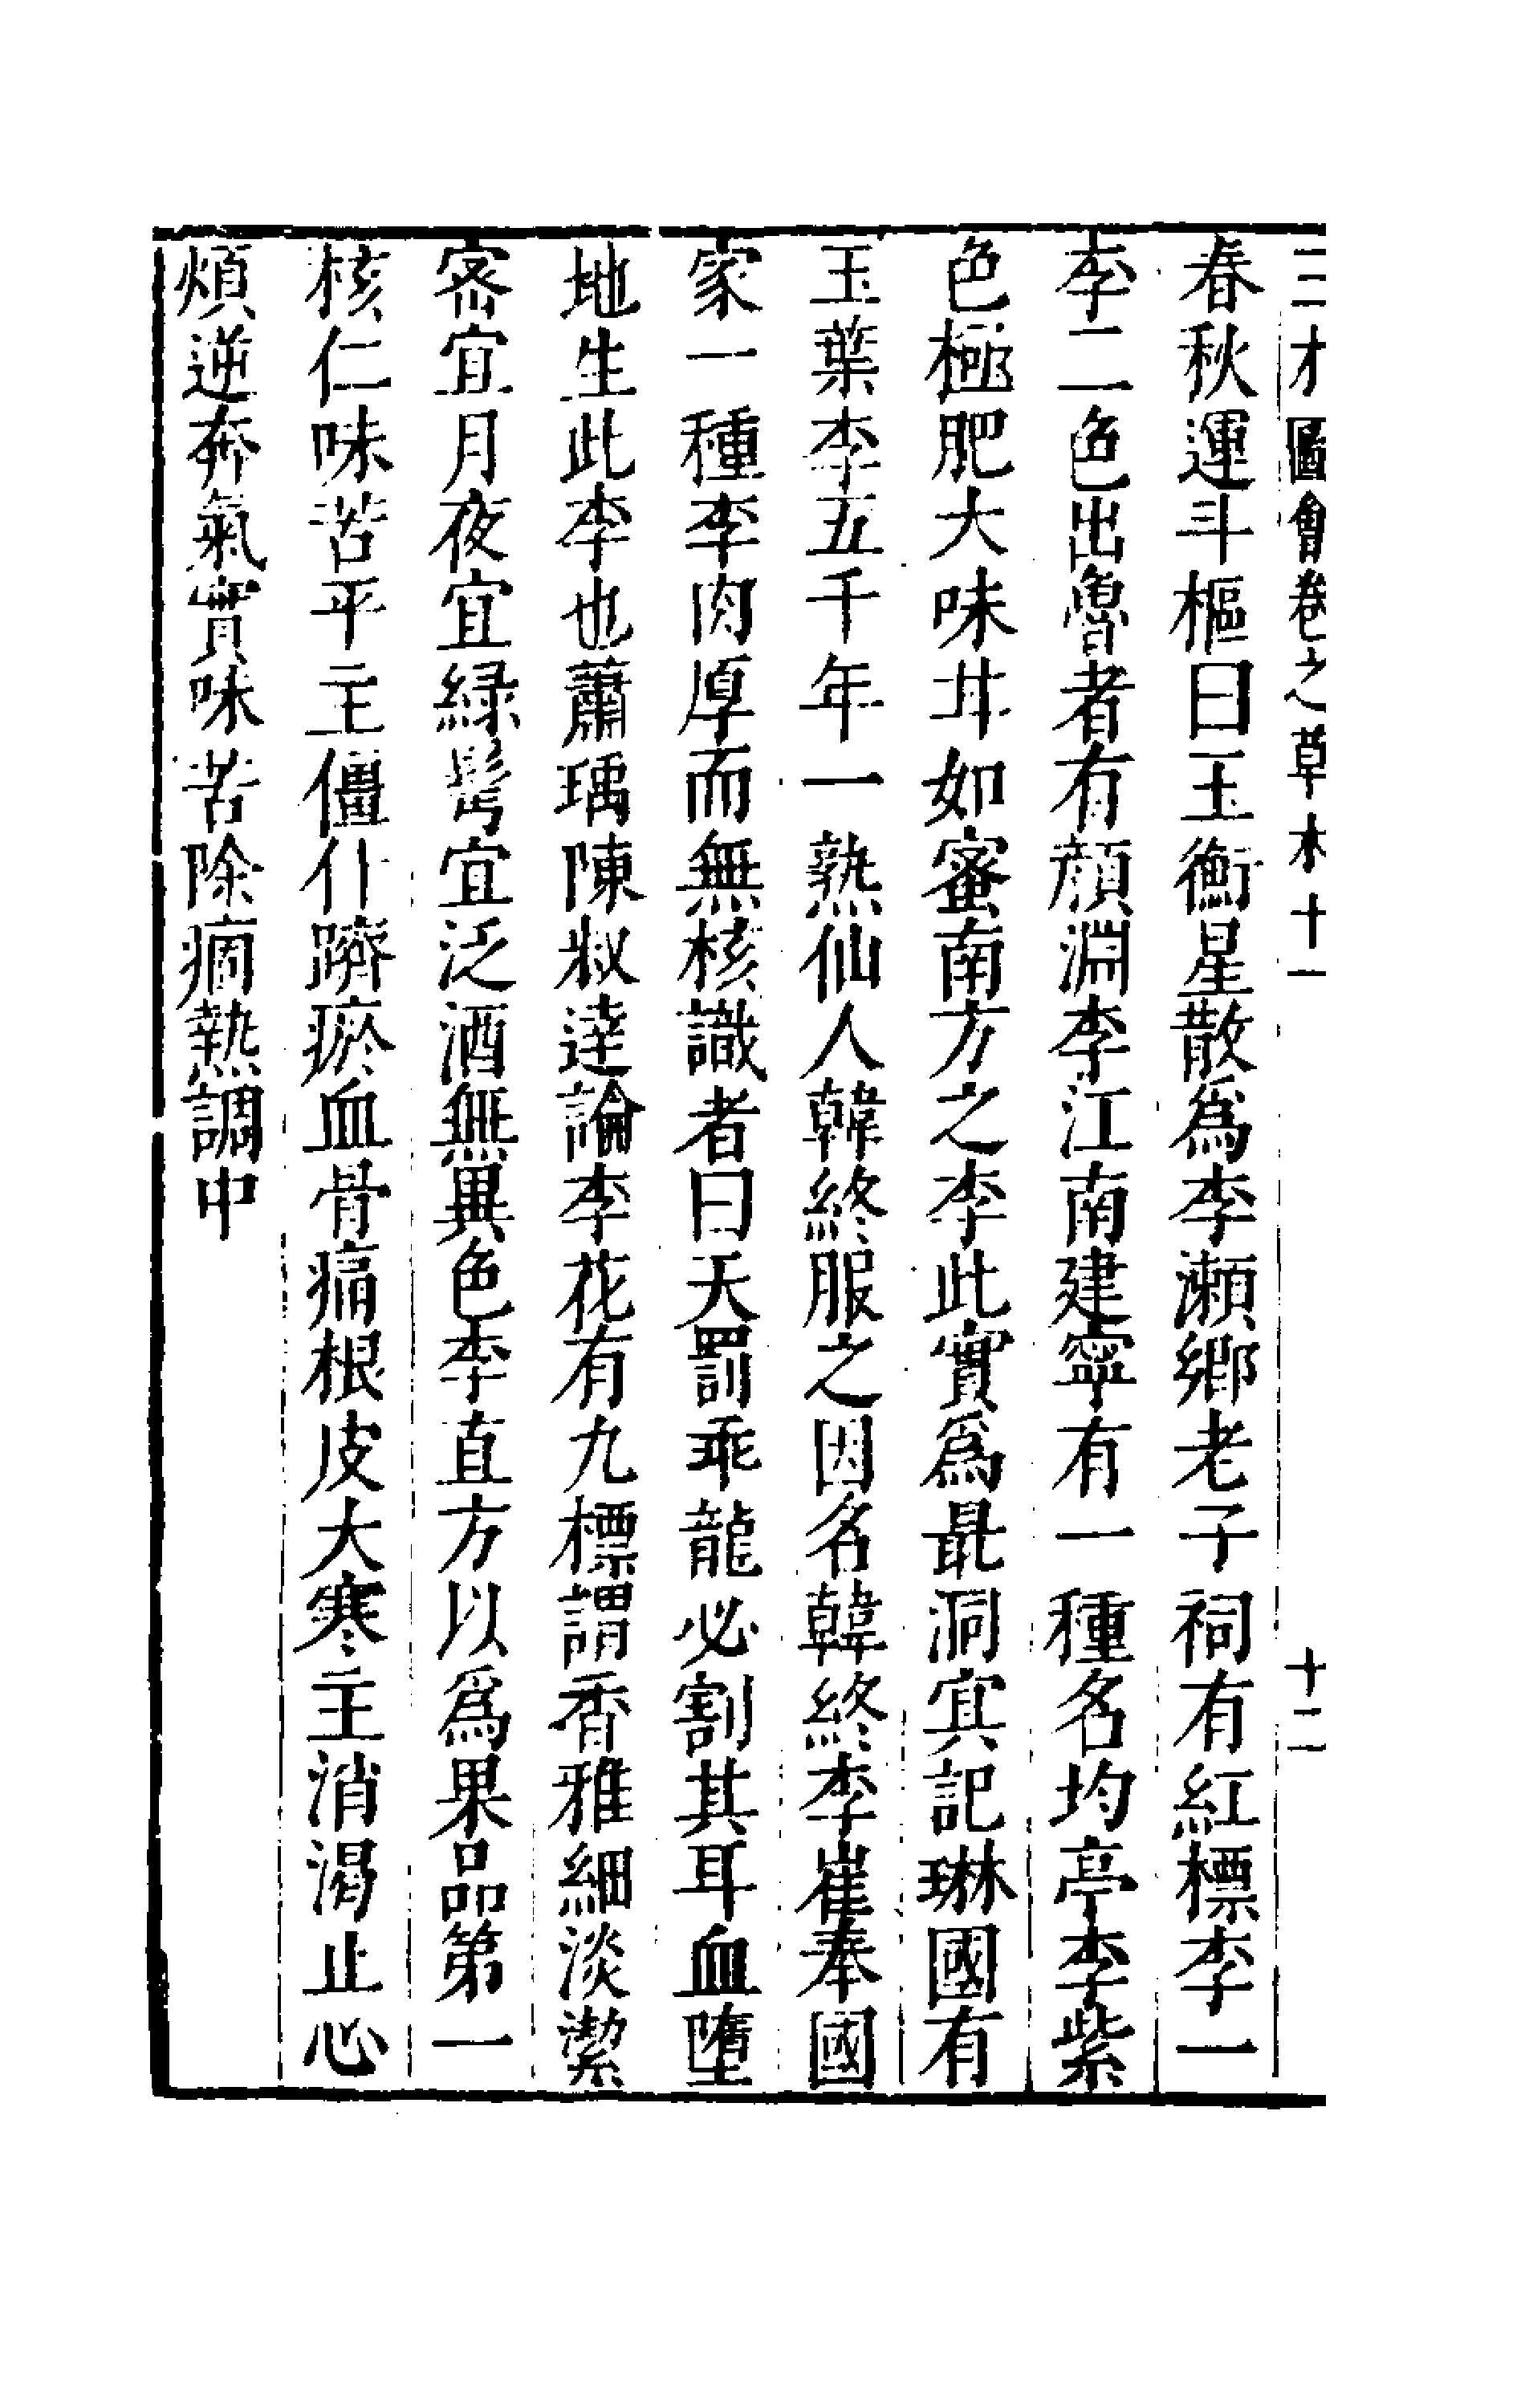 三才圖會卷之草木十一 十二
春秋運斗樞曰玉衡星散爲李瀨鄉老子祠有紅標李一
李二色出魯者有顔淵李江南建寧有一種名均亭李紫
色極肥大味甘如蜜南方之李此實爲最洞冥記琳國有
玉葉李五千年一熟仙人韓終服之因名韓終李崔奉國
家一種李肉厚而無核識者曰天罰乖龍必割其耳血墮
地生此李也蕭瑀陳叔達論李花有九標謂香雅細淡潔
密宜月夜宜綠鬂宜泛酒無異色李直方以爲果品第一
核仁味苦平主僵仆躋瘀血骨痛根皮大寒主消渴止心
煩逆奔氣實味苦除痼熱調中